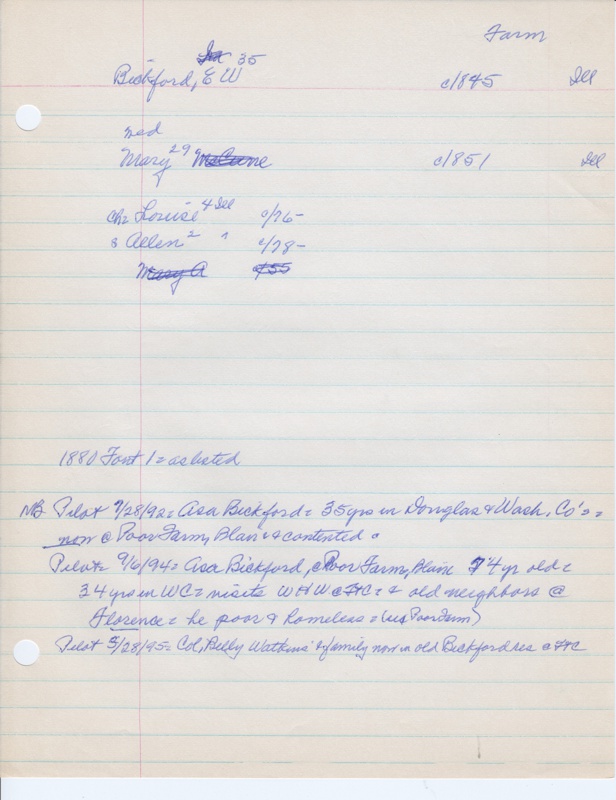 Farm
35
Bickford, E W c/845 Ill
med
Mary 29 McCune c/851 Ill
ch= Louise 4 Ill c/76-
& Allen 2 " c/78-
Mary A c/55
1880 Font 1 = as listed
NB Pilot 7/28/92 = Asa Bickford = 35 yrs in Douglas & Wash. Co's =
now @ Poor Farm, Blair & contented.
Pilot = 9/6/94 = Asa Bickford, @ Poor Farm, Blair 74 yr old =
34 yrs in WC = visits W H W @ FtC = & old neighbors @
Florence = he poor & homeless = (us Poor Farm)
Pilot 3/28/95 = Col, Billy Watkins' & family now in old Bickford res @ FtC